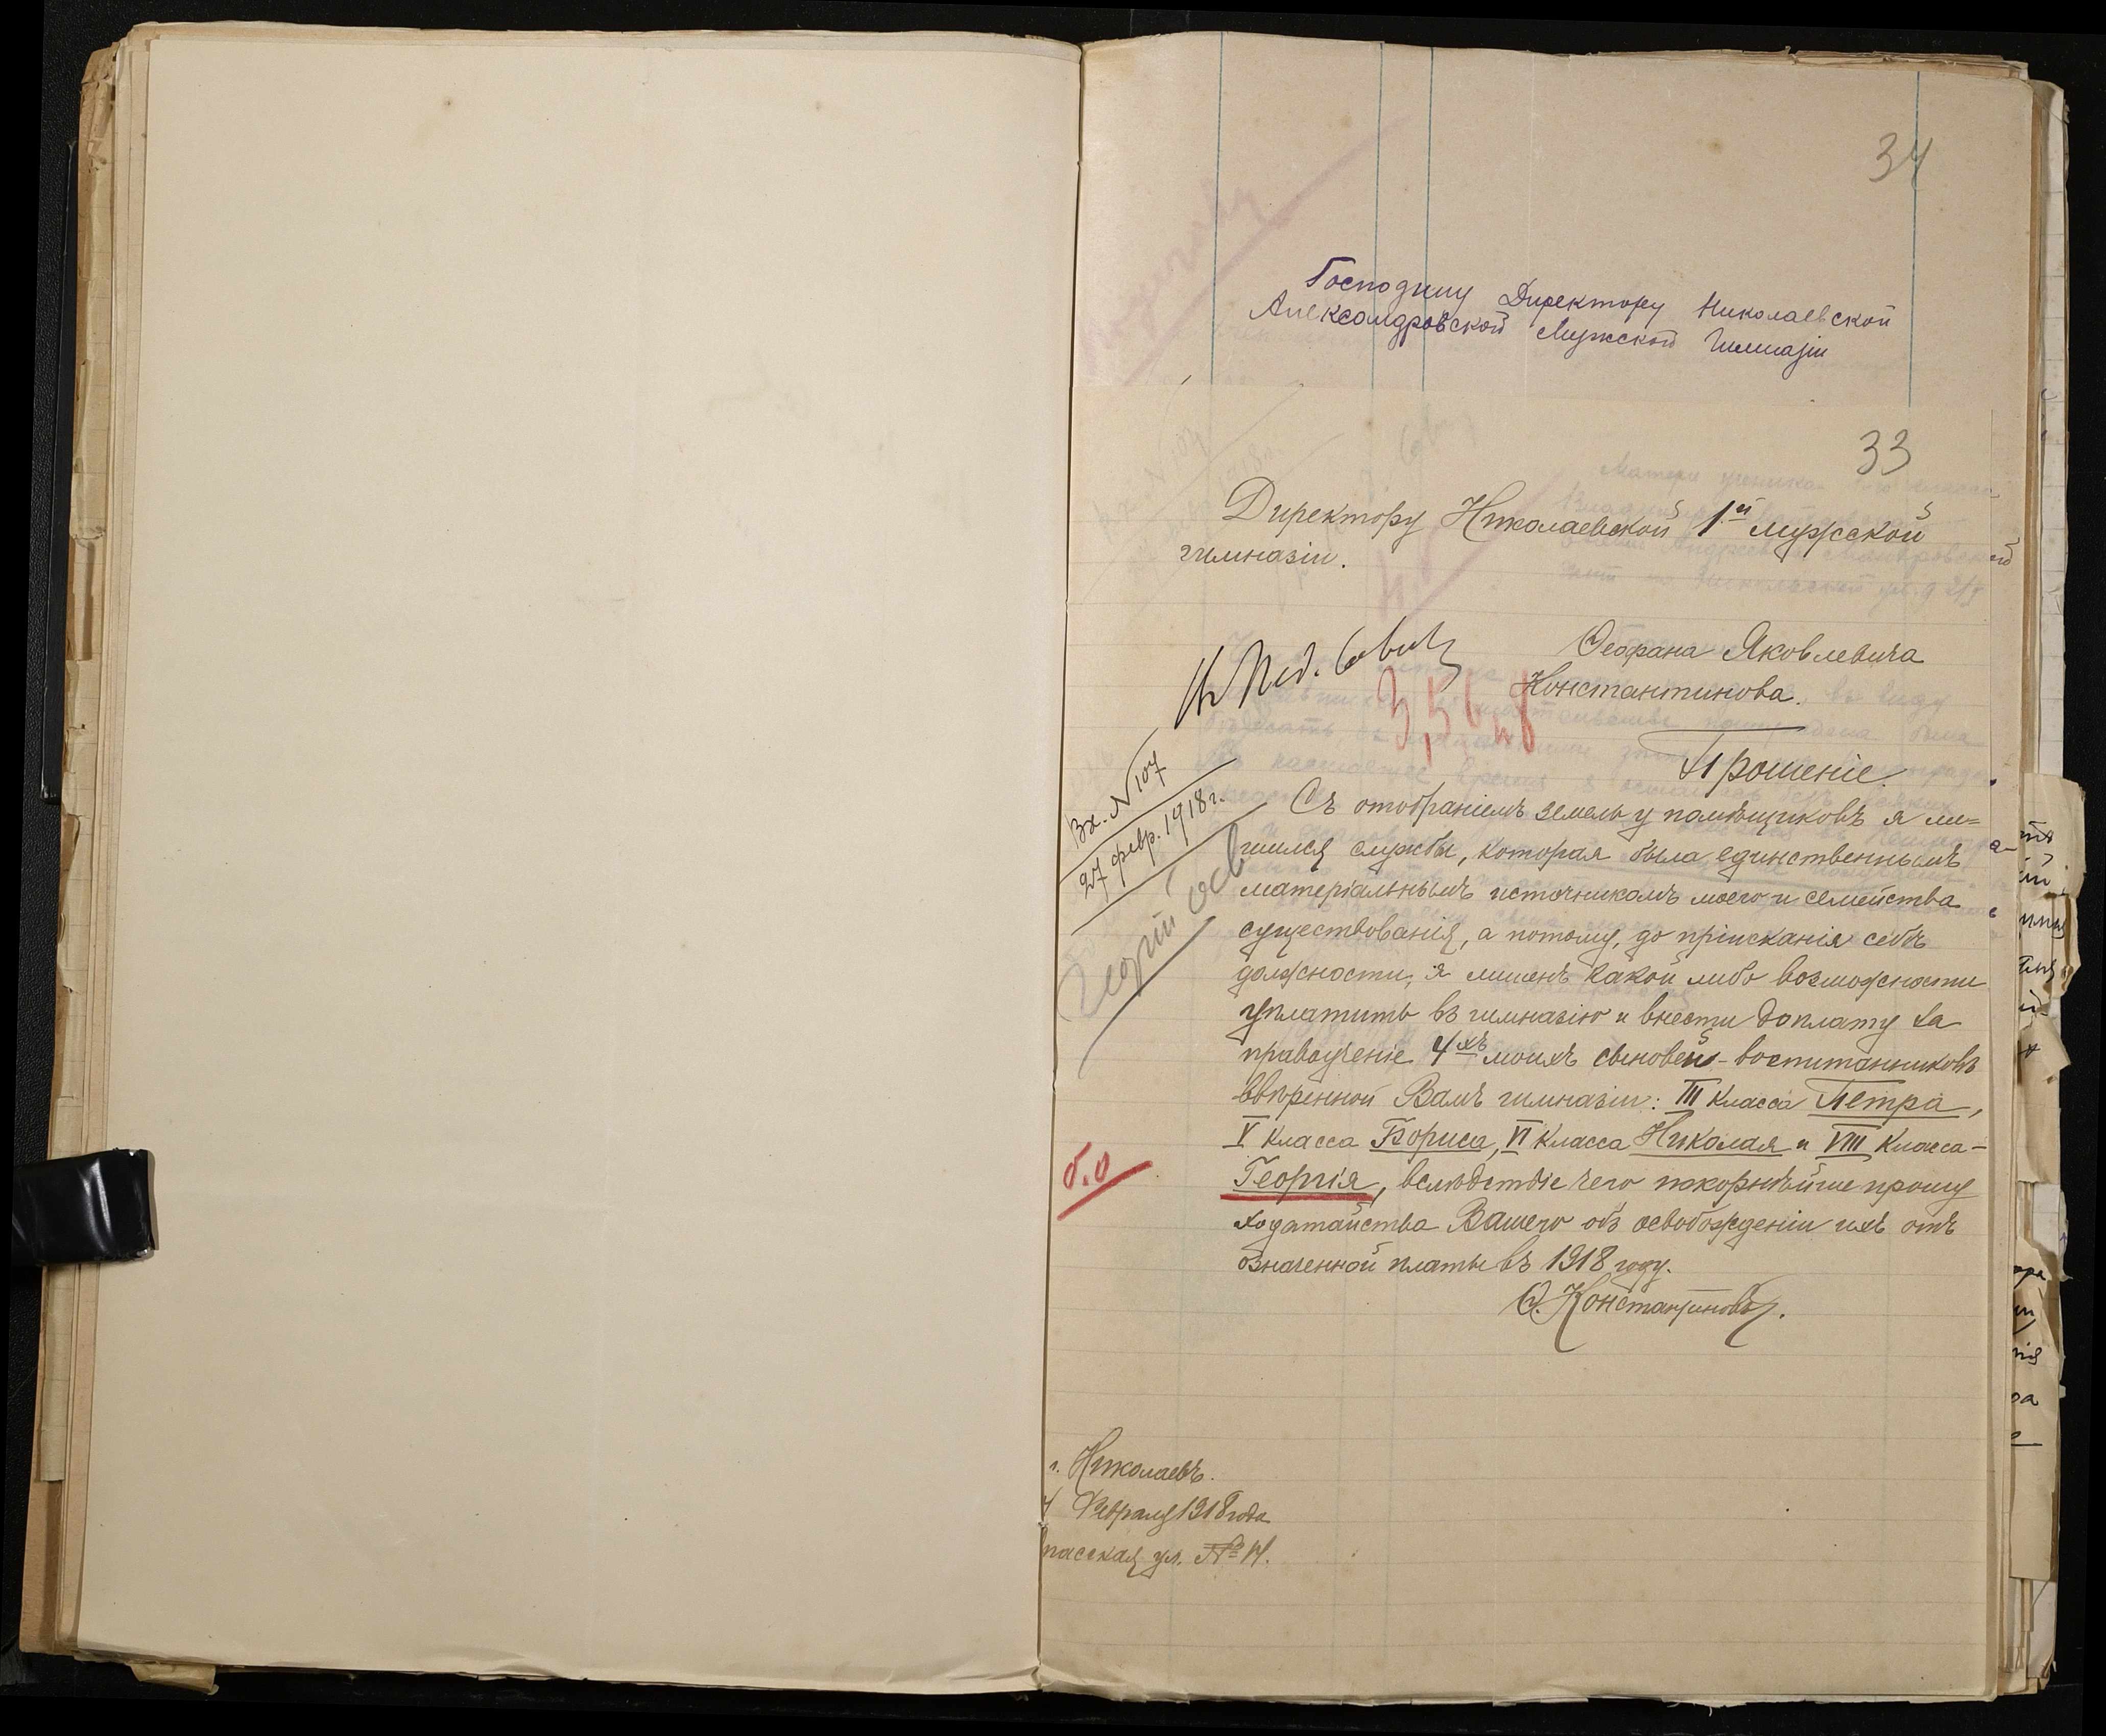 34
Господину Директору Николаевской
Александровской Мужской Гимназіи
33
Директору Николаевской 1й мужской
гимназіи.
Феофана Яковлевича
Константинова.
Въ Пед. Советъ
Прошеніе.
Вх. N 107
27 февр. 1918 г.
Георгій осв
Съ отобраніемъ земель у помѣщиковъ я ли=
шился службы, которая была единственнымъ
матеріальнымъ источникомъ моего и семейства
существованія, а потому, до пріисканія себѣ
должности, я лишенъ какой либо возможности
уплатить въ гимназію и внести доплату за
правоученіе 4хъ моихъ сыновей - воспитанниковъ
ввѣренной Вамъ гимназіи: III класса Петра,
V класса Бориса, VI класса Николая и VIII класса -
Георгія, вслѣдствіе чего покорнѣйше прошу
ходатайства Вашего объ освобожденіи ихъ отъ
означенной платы въ 1918 году.
Ф. Константиновъ.
б.о
г. Николаевъ.
Февраля 1918 года
пасская ул. №